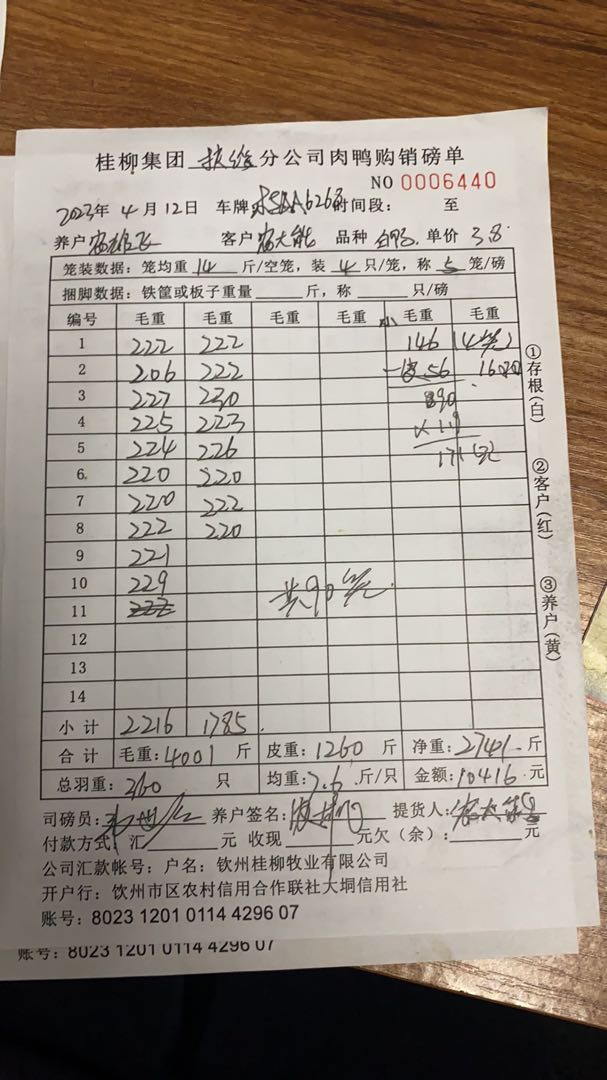 桂柳集团 扶绥 分公司肉鸭购销磅单
NO 0006440
2023年 4 月 12日 车牌 时间段: 至
养户 客户 品种 单价 3.8
笼装数据: 笼均重 14 斤/空笼, 装 4 只/笼, 称 5 笼/磅
捆脚数据: 铁筐或板子重量 斤, 称 只/磅
编号 毛重 毛重 毛重 毛重 小 毛重 毛重
1 222 222 146 (4笼)
2 206 222 56
3 227 230 890
4 225 223 ×1.9
5 224 226 171元
6 220 220
7 220 222
8 222 220
9 221
10 229 共90笼
11 222
12
13
14
小计 2216 1785
合计 毛重: 4001 斤 皮重: 1260 斤 净重: 2741 斤
总羽重: 360 只 均重: 7.6 斤/只 金额: 10416 元
司磅员: 养户签名: 提货人:
付款方式: 汇 元 收现 元欠(余): 元
公司汇款帐号: 户名: 钦州桂柳牧业有限公司
开户行: 钦州市区农村信用合作联社大垌信用社
账号: 8023 1201 0114 4296 07
账号: 8023 1201 0114 4296 07
①存根(白)
②客户(红)
③养户(黄)